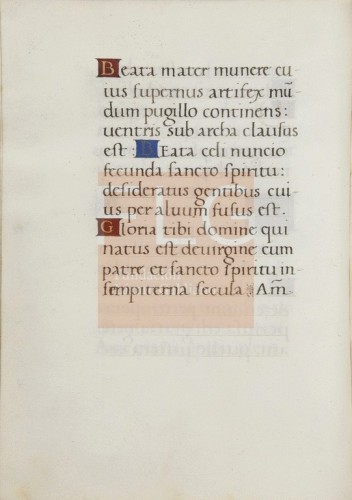 Beata mater munere cu-
ius supernus artifex mū-
dum pugillo continens:
uentris sub archa clausus
est: Beata celi nuncio
fecunda sancto spiritu:
desideratus gentibus cui-
us per aluum fusus est.
Gloria tibi domine qui
natus est deuirgine cum
patre et sancto spiritu in-
sempiterna secula: Am̄